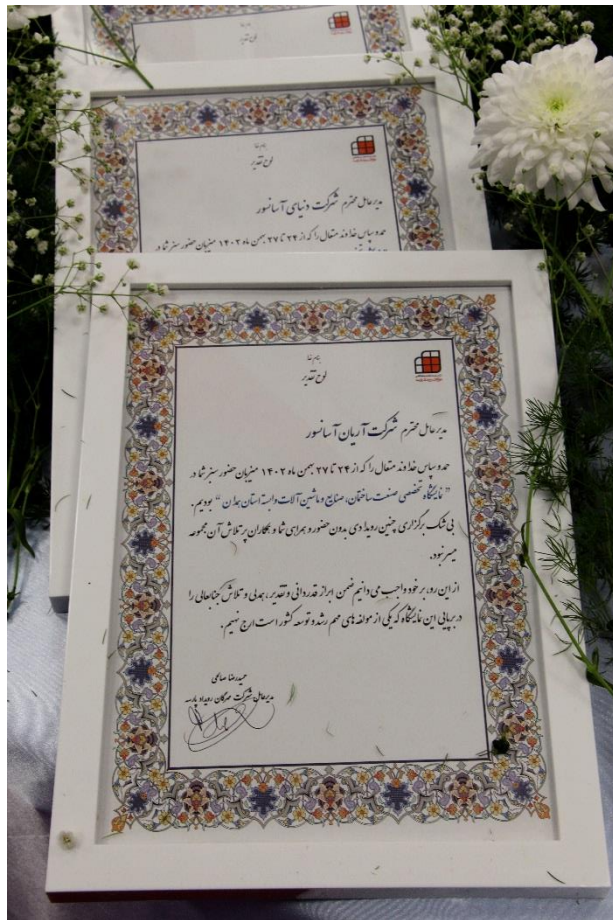 لوح تقدیر
بنام خدا
لوح تقدیر
مدیرعامل محترم شرکت دنیای آسانسور
حمد و سپاس خداوند متعال را که از ۲۴ تا ۲۷ بهمن ماه ۱۴۰۲ میزبان حضور سبز شما در
بنام خدا
لوح تقدیر
مدیرعامل محترم شرکت آریان آسانسور
حمد و سپاس خداوند متعال را که از ۲۴ تا ۲۷ بهمن ماه ۱۴۰۲ میزبان حضور سبز شما در
" نمایشگاه تخصصی صنعت ساختمان، صنایع و ماشین آلات وابسته استان همدان " بودیم.
بی شک برگزاری چنین رویدادی بدون حضور و همراهی شما و همکاران پر تلاش آن مجموعه
میسر نبود.
از این رو، بر خود واجب می دانیم ضمن ابراز قدردانی و تقدیر، همدلی و تلاش جنابعالی را
در برپایی این نمایشگاه که یکی از مولفه های مهم رشد و توسعه کشور است ارج نهیم.
حمیدرضا صالحی
مدیرعامل شرکت مهرگان رویداد پارسه